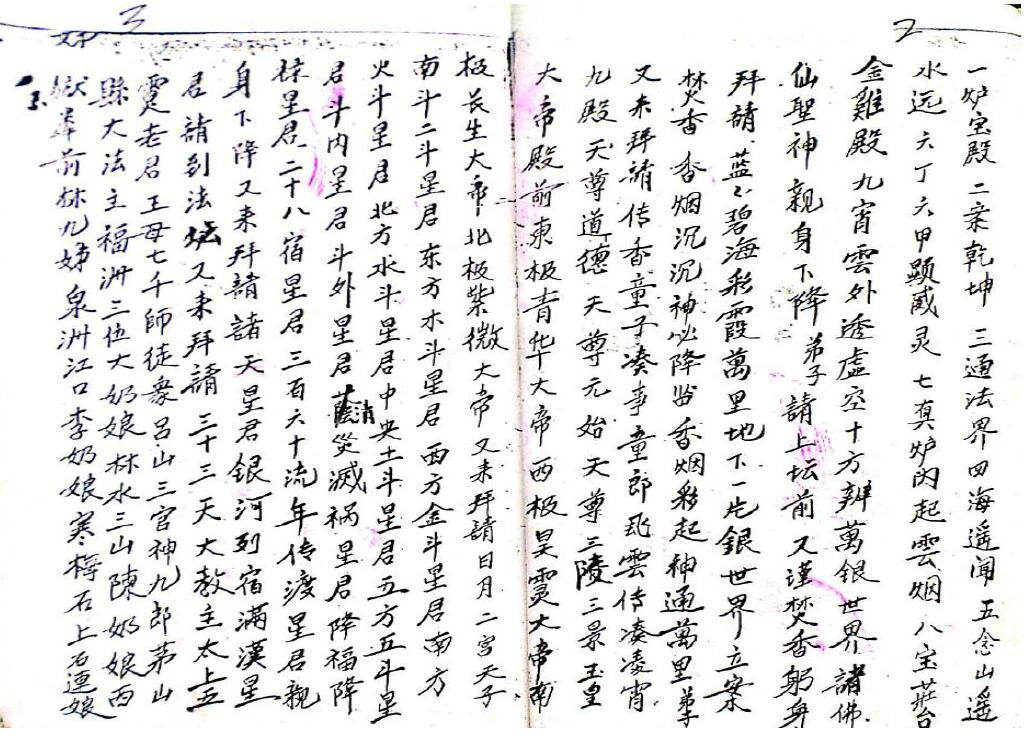 2
一炉宝殿 二案乾坤 三通法界四海遥闻 五念山遥
水远 六丁六甲顯威灵 七真炉内起雲烟 八宝莊台
金雞殿 九宵雲外透虚空十方辨萬銀世界諸佛
仙聖神親身下降 弟子請上坛前 又谨焚香躬身
拜請 蓝々碧海彩霞萬里地下一片銀世界立案
焚香 香烟沉沉神必降 当香烟彩起神通萬里 弟子
又来拜請传香童子凑事童郎飛雲传凑凌宵
九殿天尊道德天尊元始天尊三陵三景玉皇
大帝殿前東极青华大帝西极昊霊大帝南
3
极长生大帝北极紫微大帝又来拜請日月二宫天子
南斗二斗星君东方木斗星君西方金斗星君南方
火斗星君北方水斗星君中央土斗星君五方五斗星
君斗内星君斗外星君 消災滅祸星君降福降
祿星君二十八宿星君三百六十流年传渡星君親
身下降又来拜請諸天星君銀河列宿滿漢星
君請到法坛又来拜請三十三天大教主太上五
霊老君王母七千師徒衆吕山三官神九郎茅山
縣大法主福洲三位大奶娘林水三山陳奶娘西
嶽 前林九娣泉洲江口李奶娘寒梅石上 娘